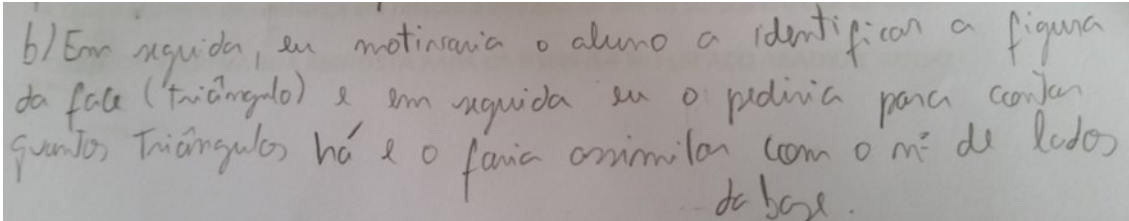 b) Em seguida, eu motivaria o aluno a identificar a figura
da face (triângulo) e em seguida eu o pediria para contar
quantos triângulos há e o faria assimilar com o nº de lados
da base.